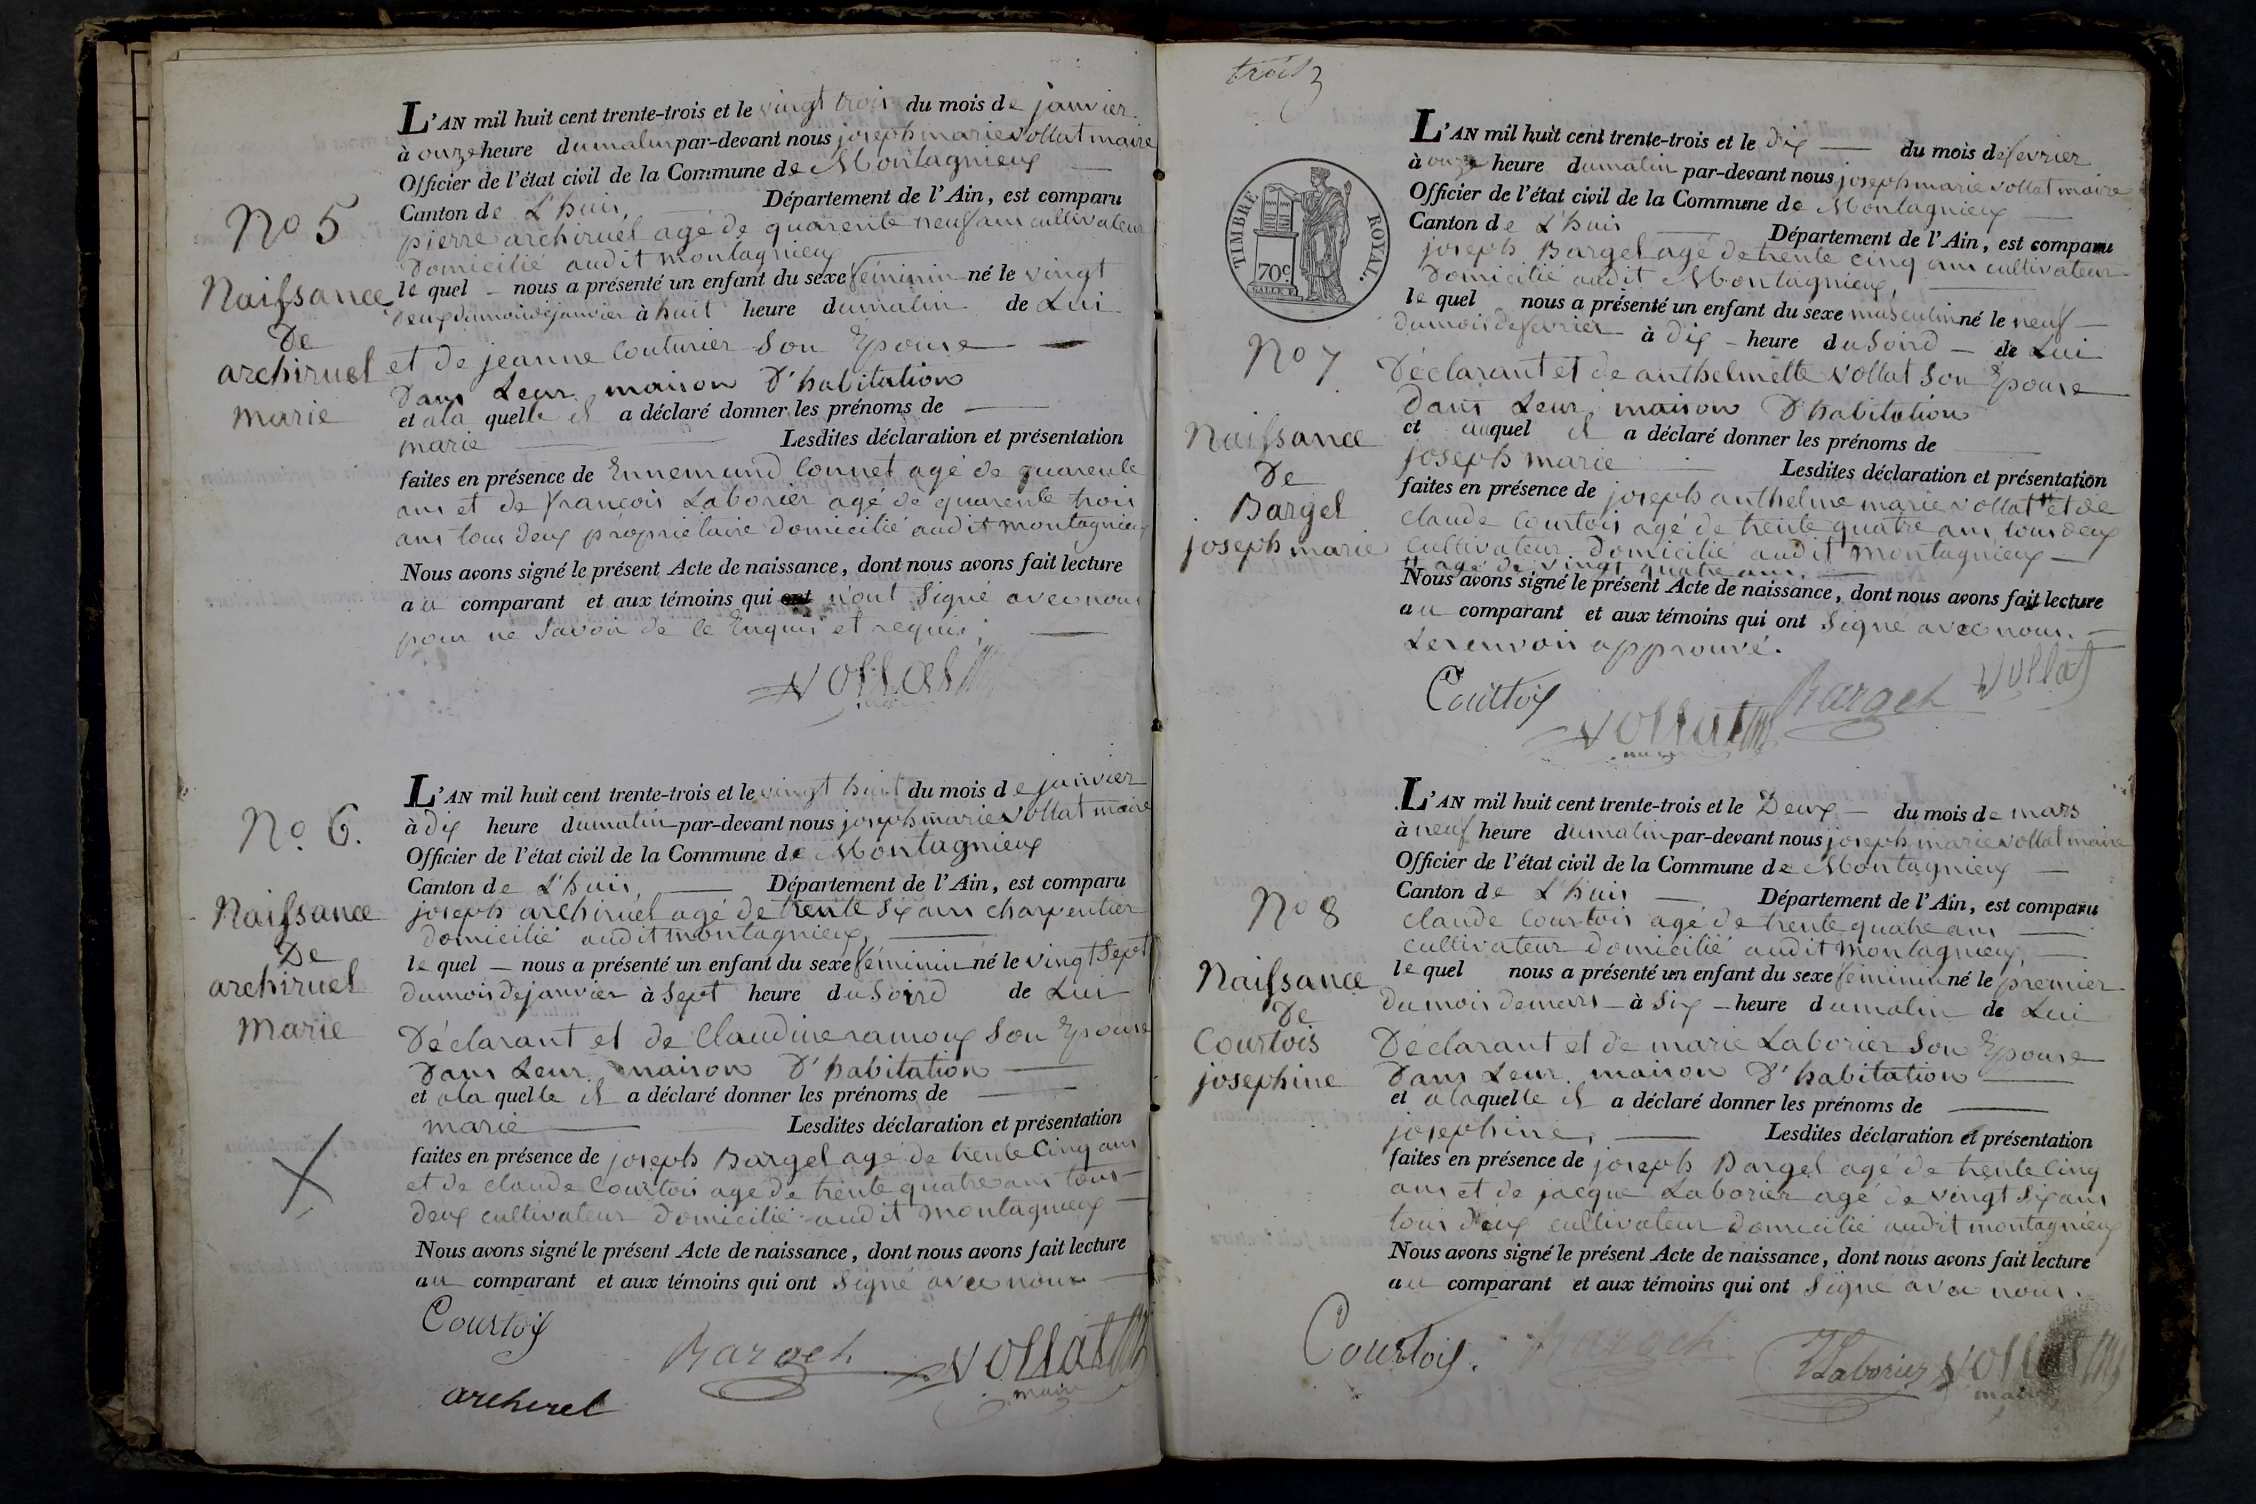 No 5
Naissance
De
archiruel
marie
L'AN mil huit cent trente-trois et le vingt trois du mois de janvier
à onze heure du matin par-devant nous joseph marie vollat maire
Officier de l'état civil de la Commune de Montagnieux
Canton de L'huis, Département de l'Ain, est comparu
pierre archiruel agé de quarente neuf ans cultivateur
Domicilié audit montagnieux
le quel nous a présenté un enfant du sexe féminin né le vingt
Deux du mois de janvier à huit heure du matin de Lui
et de jeanne couturier Son Epouse
Dans Leur maison D'habitation
et ala quelle il a déclaré donner les prénoms de
marie Lesdites déclaration et présentation
faites en présence de Ennemund Connet agé de quarente
ans et de françois Laborier agé de quarente trois
ans tous deux propriétaire domicilié audit montagnieux
Nous avons signé le présent Acte de naissance, dont nous avons fait lecture
au comparant et aux témoins qui ont n'ont Signé avec nous
pour ne Savoir de ce Enquis et requis;
vollat
No 6.
Naissance
De
archiruel
Marie
L'AN mil huit cent trente-trois et le vingt huit du mois de janvier
à dix heure du matin par-devant nous joseph marie vollat maire
Officier de l'état civil de la Commune de Montagnieux
Canton de L'huis, Département de l'Ain, est comparu
joseph archiruel agé de trente Six ans charpentier
domicilié audit montagnieux,
le quel nous a présenté un enfant du sexe féminin né le vingt Sept
du mois de janvier à Sept heure du Soird de Lui
Déclarant et de Claudine ramoux Son Epouse
Dans Leur maison D'habitation
et ala quelle il a déclaré donner les prénoms de
marie Lesdites déclaration et présentation
faites en présence de joseph Bargel agé de trente Cinq ans
et de claude Courtois agé de trente quatre ans tous
deux cultivateur Domicilié audit montagnieux
Nous avons signé le présent Acte de naissance, dont nous avons fait lecture
au comparant et aux témoins qui ont Signé avec nous
Courtois
Bargel
vollat
maire
archirel
trois
TIMBRE ROYAL.
70c
No 7
Naissance
De
Bargel
joseph marie
L'AN mil huit cent trente-trois et le dix du mois de fevrier
à onze heure du matin par-devant nous joseph marie vollat maire
Officier de l'état civil de la Commune de Montagnieux
Canton de L'huis Département de l'Ain, est comparu
joseph Bargel agé de trente cinq ans cultivateur
Domicilié audit Montagnieux,
le quel nous a présenté un enfant du sexe masculin né le neuf
du mois de fevrier à dix heure du Soird de Lui
Déclarant et de anthelmette vollat Son Epouse
Dans Leur maison D'habitation
et auquel il a déclaré donner les prénoms de
joseph marie Lesdites déclaration et présentation
faites en présence de joseph anthelme marie vollat # et de
claude Courtois agé de trente quatre ans tous deux
cultivateur domicilié audit montagnieux
# agé de vingt quatre ans.
Nous avons signé le présent Acte de naissance, dont nous avons fait lecture
au comparant et aux témoins qui ont Signé avec nous.
Le renvoir approuvé.
Courtois
Bargel
vollat
vollat
No 8
Naissance
De
Courtois
josephine
L'AN mil huit cent trente-trois et le Deux du mois de mars
à neuf heure du matin par-devant nous joseph marie vollat maire
Officier de l'état civil de la Commune de Montagnieux
Canton de L'huis Département de l'Ain, est comparu
claude Courtois agé de trente quatre ans
cultivateur domicilié audit montagnieux,
le quel nous a présenté un enfant du sexe féminin né le premier
du mois de mars à Six heure du matin de Lui
Déclarant et de marie Laborier Son Epouse
Dans Leur maison D'habitation
et ala quelle il a déclaré donner les prénoms de
josephine, Lesdites déclaration et présentation
faites en présence de joseph Bargel agé de trente Cinq
ans et de jacque Laborier agé de vingt Six ans
tous deux cultivateur domicilié audit montagnieux
Nous avons signé le présent Acte de naissance, dont nous avons fait lecture
au comparant et aux témoins qui ont Signé avec nous.
Courtois.
Laborier
vollat
maire